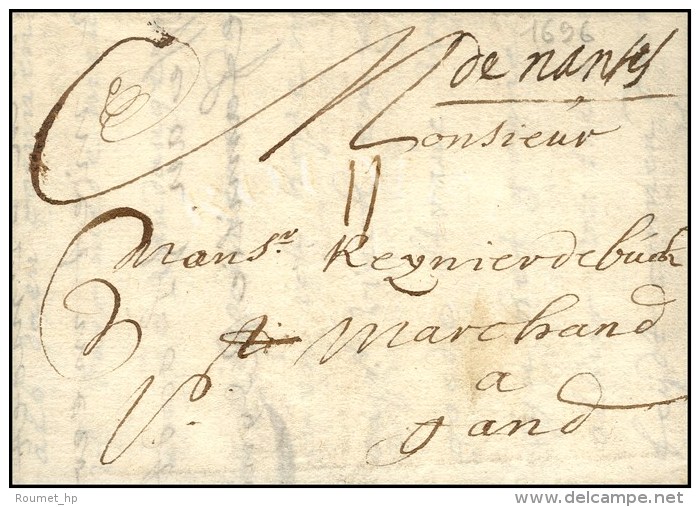 1696
de nantes
Monsieur
11
Monsr. Reynier de búck
Marchand
a
gand
Roumet_hp
www.delcampe.net